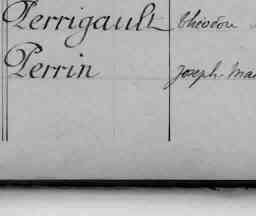 Perrigault Théodou
Perrin Joseph-Ma